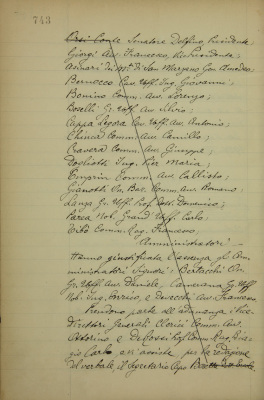 743
Orsi Conte Senatore Delfino, Presidente;
Giorgi Avv. Francesco, Vicepresidente;
Asinari di San Marzano Gr. Amedeo;
Bernocco Cav. Uff. Ing. Giovanni;
Bonino Comm. Avv. Lorenzo;
Boselli Gr. Uff. Avv. Silvio;
Cappa Legora Cav. Uff. Avv. Antonio;
Chiesa Comm. Avv. Camillo;
Cravera Comm. Avv. Giuseppe;
Dogliotti Ing. Pier Maria;
Emprin Comm. Avv. Callisto;
Gianotti Comm. Avv. Romano;
Lanza Gr. Uff. Prof. Dott. Domenico;
Parea Nob. Grand Uff. Carlo;
Tibò Comm. Rag. Francesco,
Amministratori
Hanno giustificata l'assenza gli Am
ministratori Signori: Bertacchi On.
Gr. Uff. Avv. Daniele, Camerana Gr. Uff.
Nob. Ing. Enrico, e Avv. Francesco.
Prendono parte all'adunanza i Vice
Direttori Generali Clerici Comm. Avv.
Vittorino e Comm. Rag.
Carlo, e vi assiste per la redazione
del verbale, il Segretario Capo